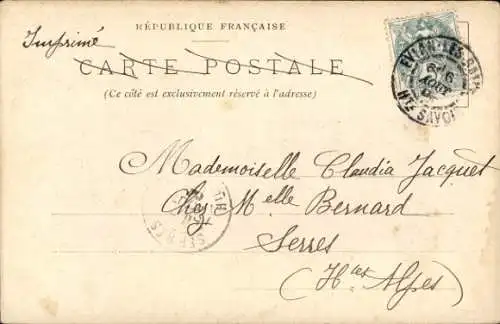 RÉPUBLIQUE FRANÇAISE
Imprimé
CARTE POSTALE
(Ce côté est exclusivement réservé à l'adresse)
EVIAN-LES-BAINS
6
AOUT
Hte SAVOIE
Mademoiselle Claudia Jacquet
Chez Melle Bernard
Serres
(Htes Alpes)
SERRES